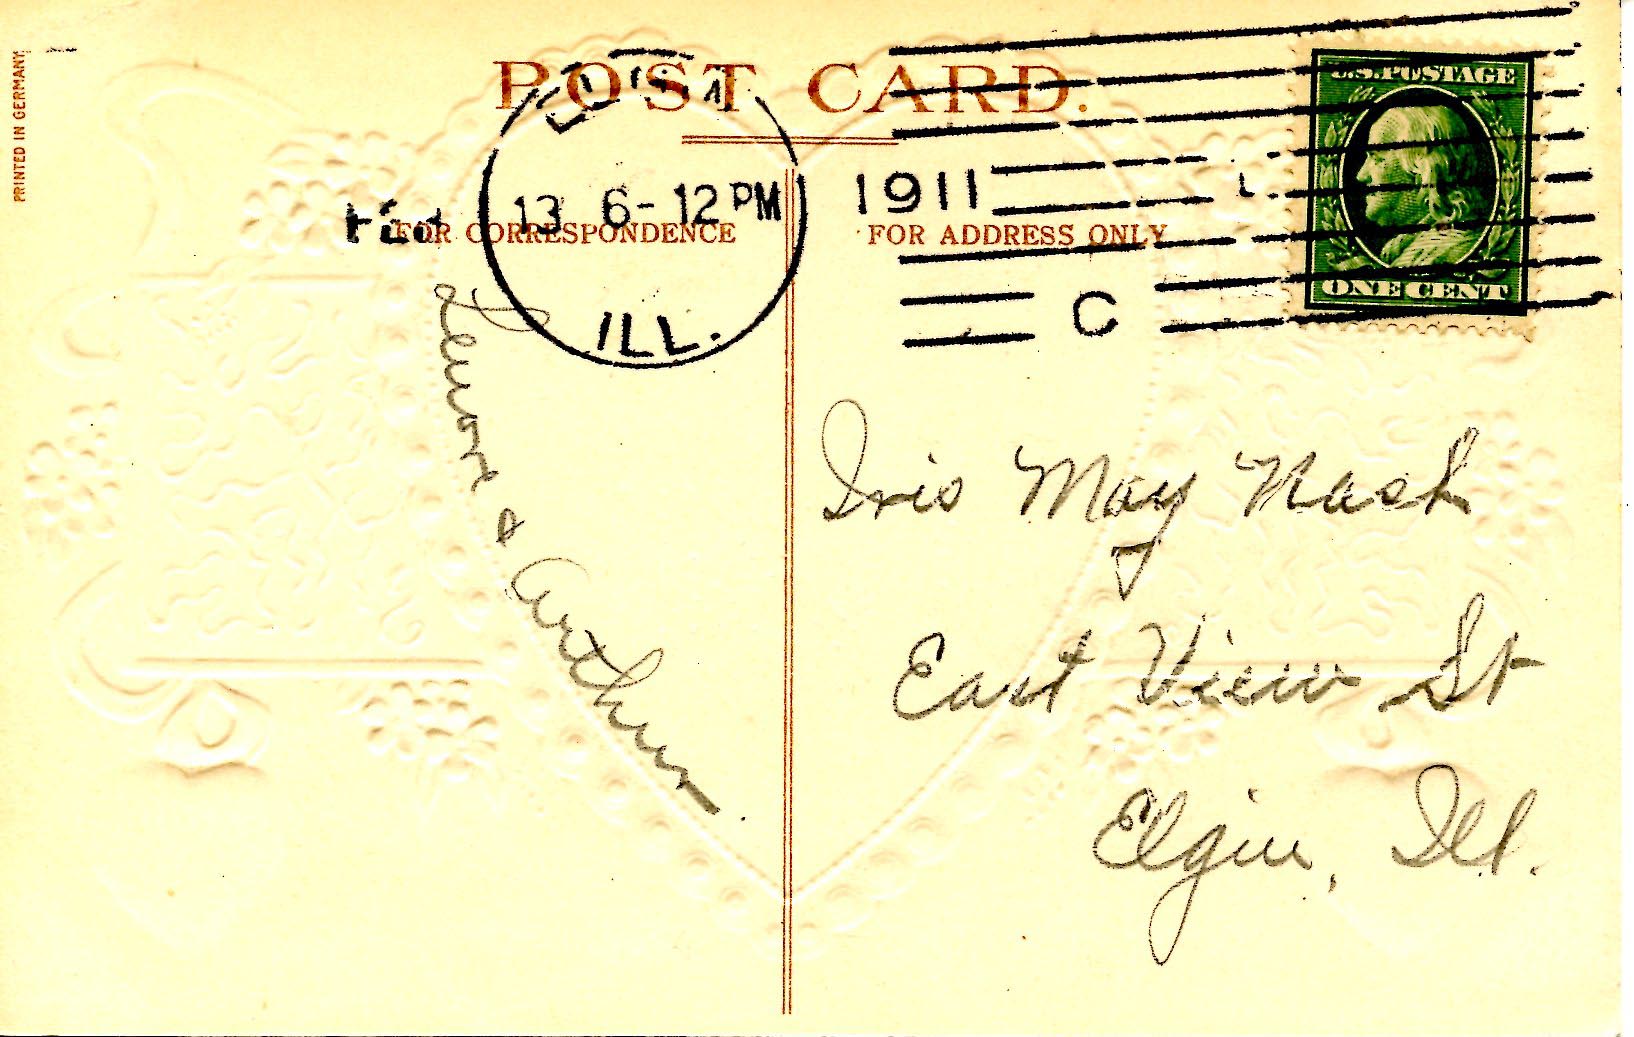 PRINTED IN GERMANY
POST CARD.
U.S. POSTAGE
13 6-12 PM
1911
FOR CORRESPONDENCE
FOR ADDRESS ONLY
ONE CENT
ILL.
C
Lenore & Arthur
Iris May Nash
East View St
Elgin, Ill.